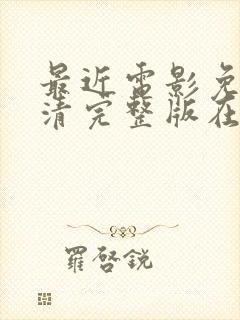 最近電影免
清完整版在
羅啓銳